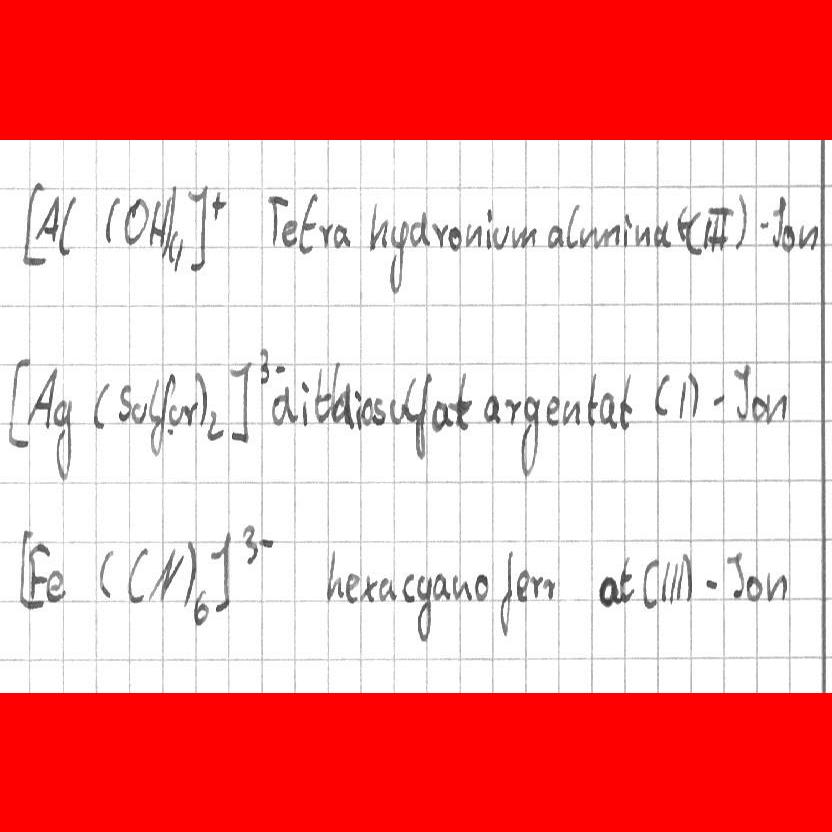 [Al (OH)4]+ Tetra hydronium aluminat(III)-Ion
[Ag (Sulfur)2]3- dithiosulfat argentat (I)-Ion
[Fe (CN)6]3- hexacyano ferr at (III)-Ion